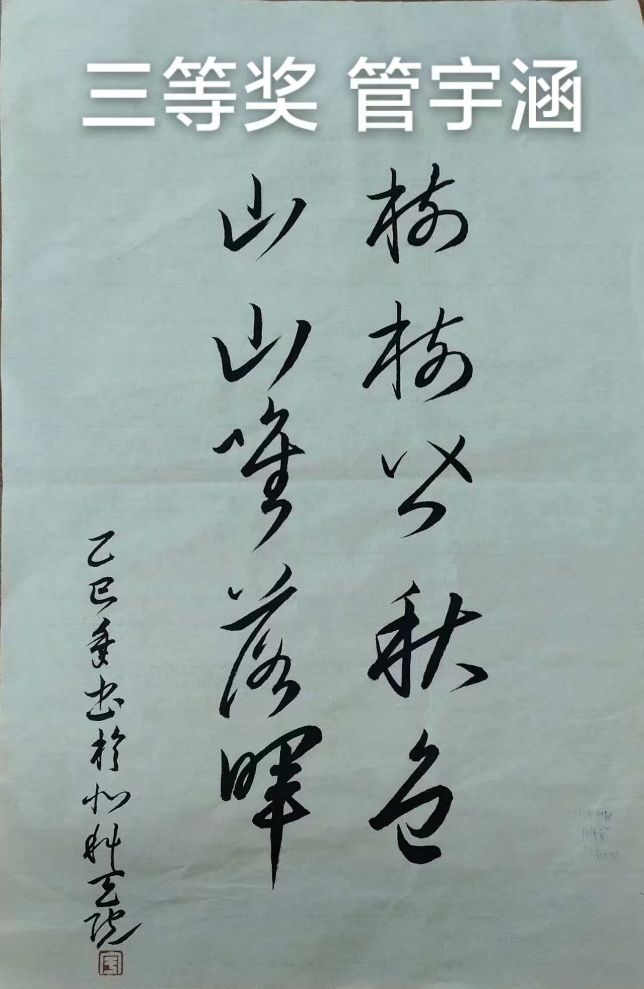 三等奖 管宇涵
树树皆秋色
山山唯落晖
乙巳年书于北科天院